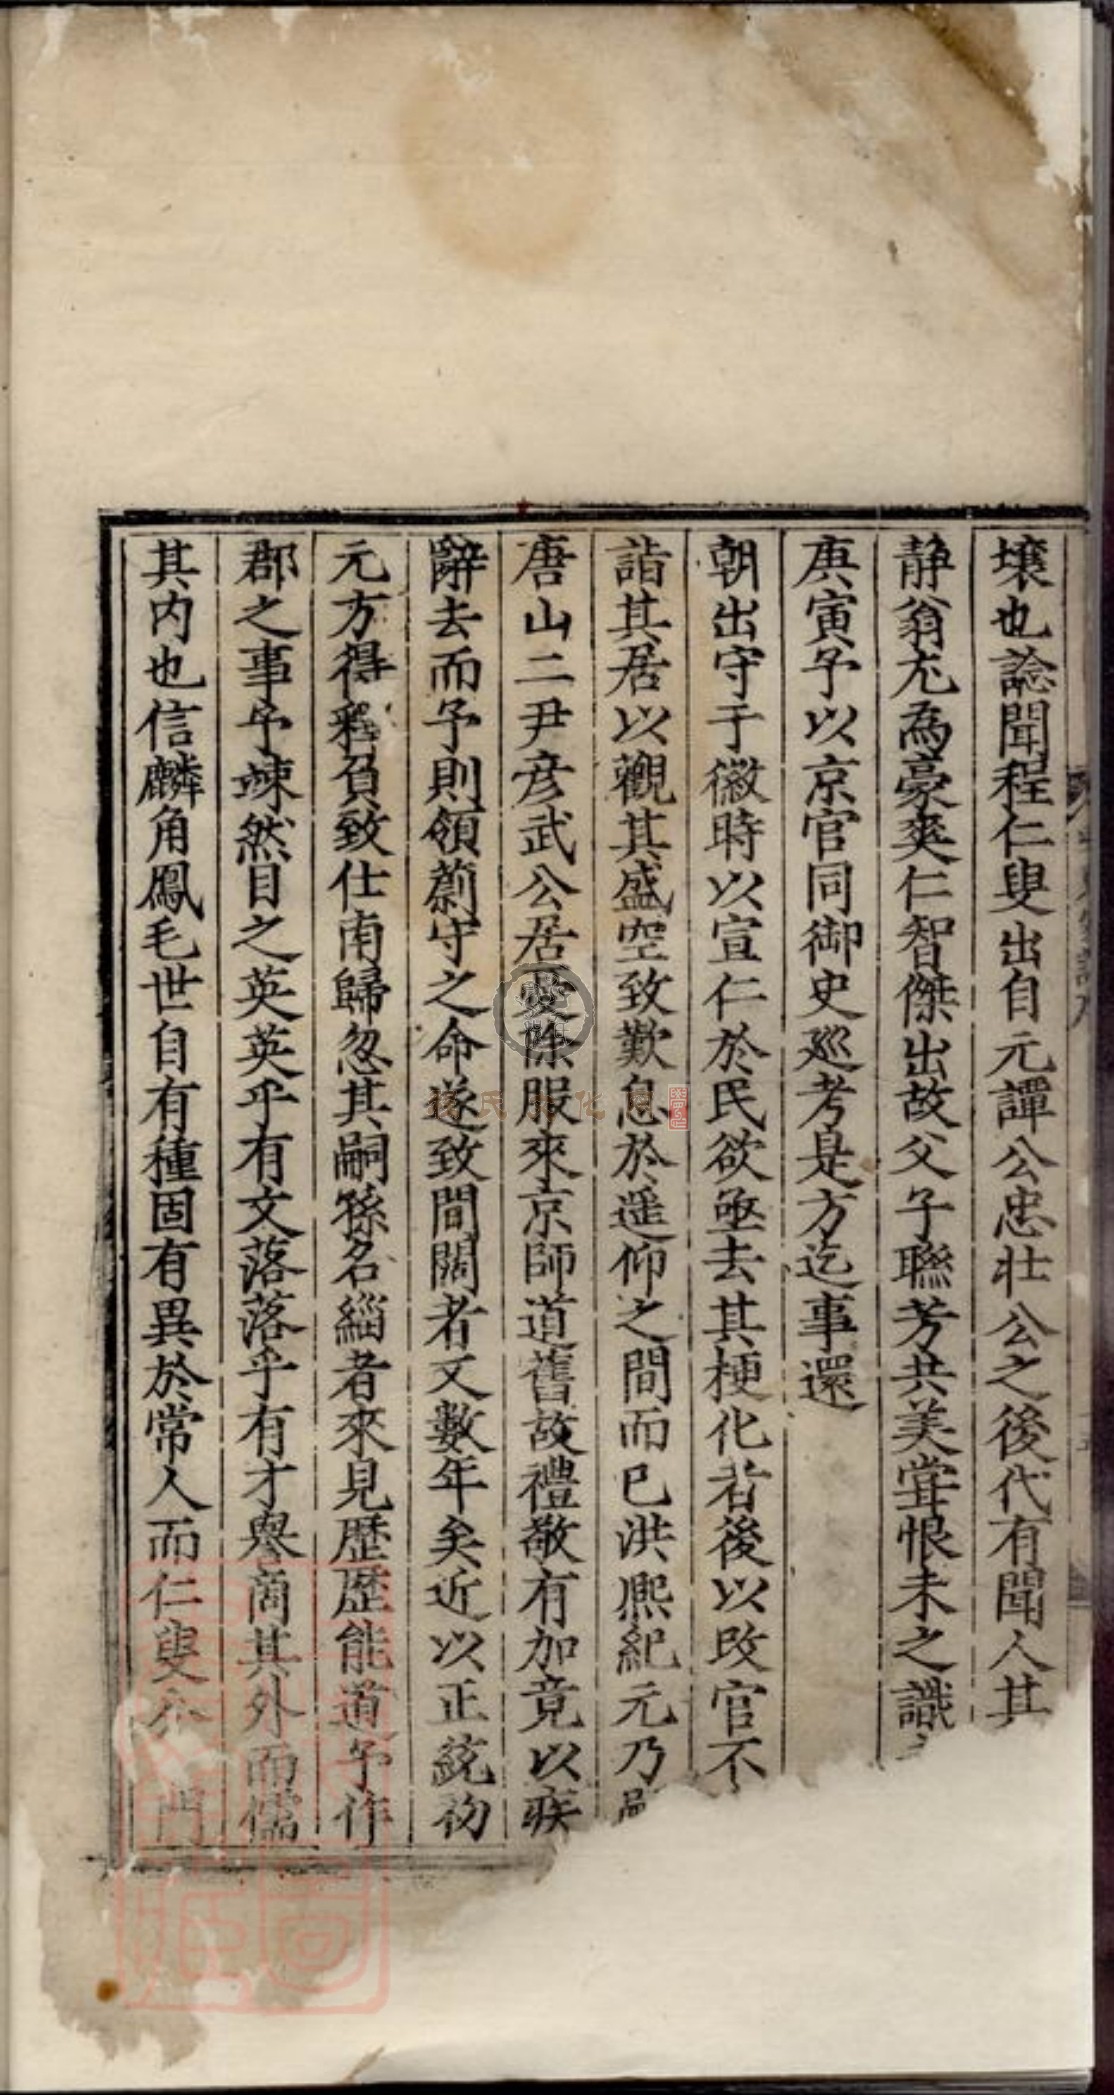 壤也諗聞程仁叟出自元譚公忠壯公之後代有聞人其
靜翁尤為豪爽仁智傑出故父子聯芳共美甞恨未之識
庚寅予以京官同御史廵考是方迄事還
朝出守于徽時以宣仁於民欲亟去其梗化者後以改官不
詣其居以觀其盛空致歎息於遥仰之間而已洪熈紀元乃
唐山二尹彦武公居憂除服來京師道舊故禮敬有加竟以疾
辭去而予則領薊守之命遂致間闊者又數年矣近以正統初
元方得釋負致仕南歸忽其嗣孫名緇者來見歷歷能道予作
郡之事予竦然目之英英乎有文落落乎有才譽商其外而儒
其内也信麟角鳳毛世自有種固有異於常人而仁叟公門